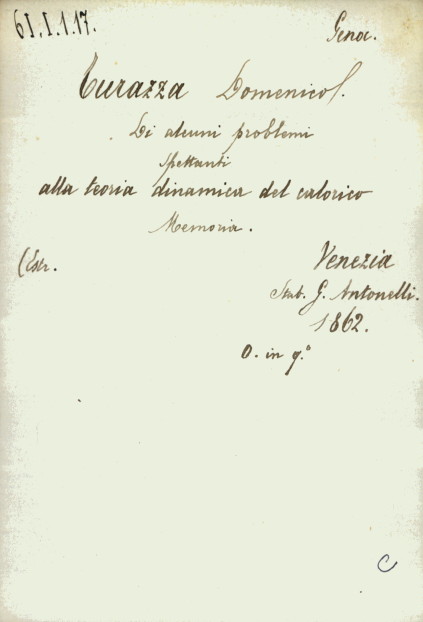 61.I.1.17.
Genoc.
Turazza Domenico.
Di alcuni problemi
spettanti
alla teoria dinamica del calorico
Memoria.
(Estr.
Venezia
Stab. G. Antonelli.
1862.
O. in 4.º
C